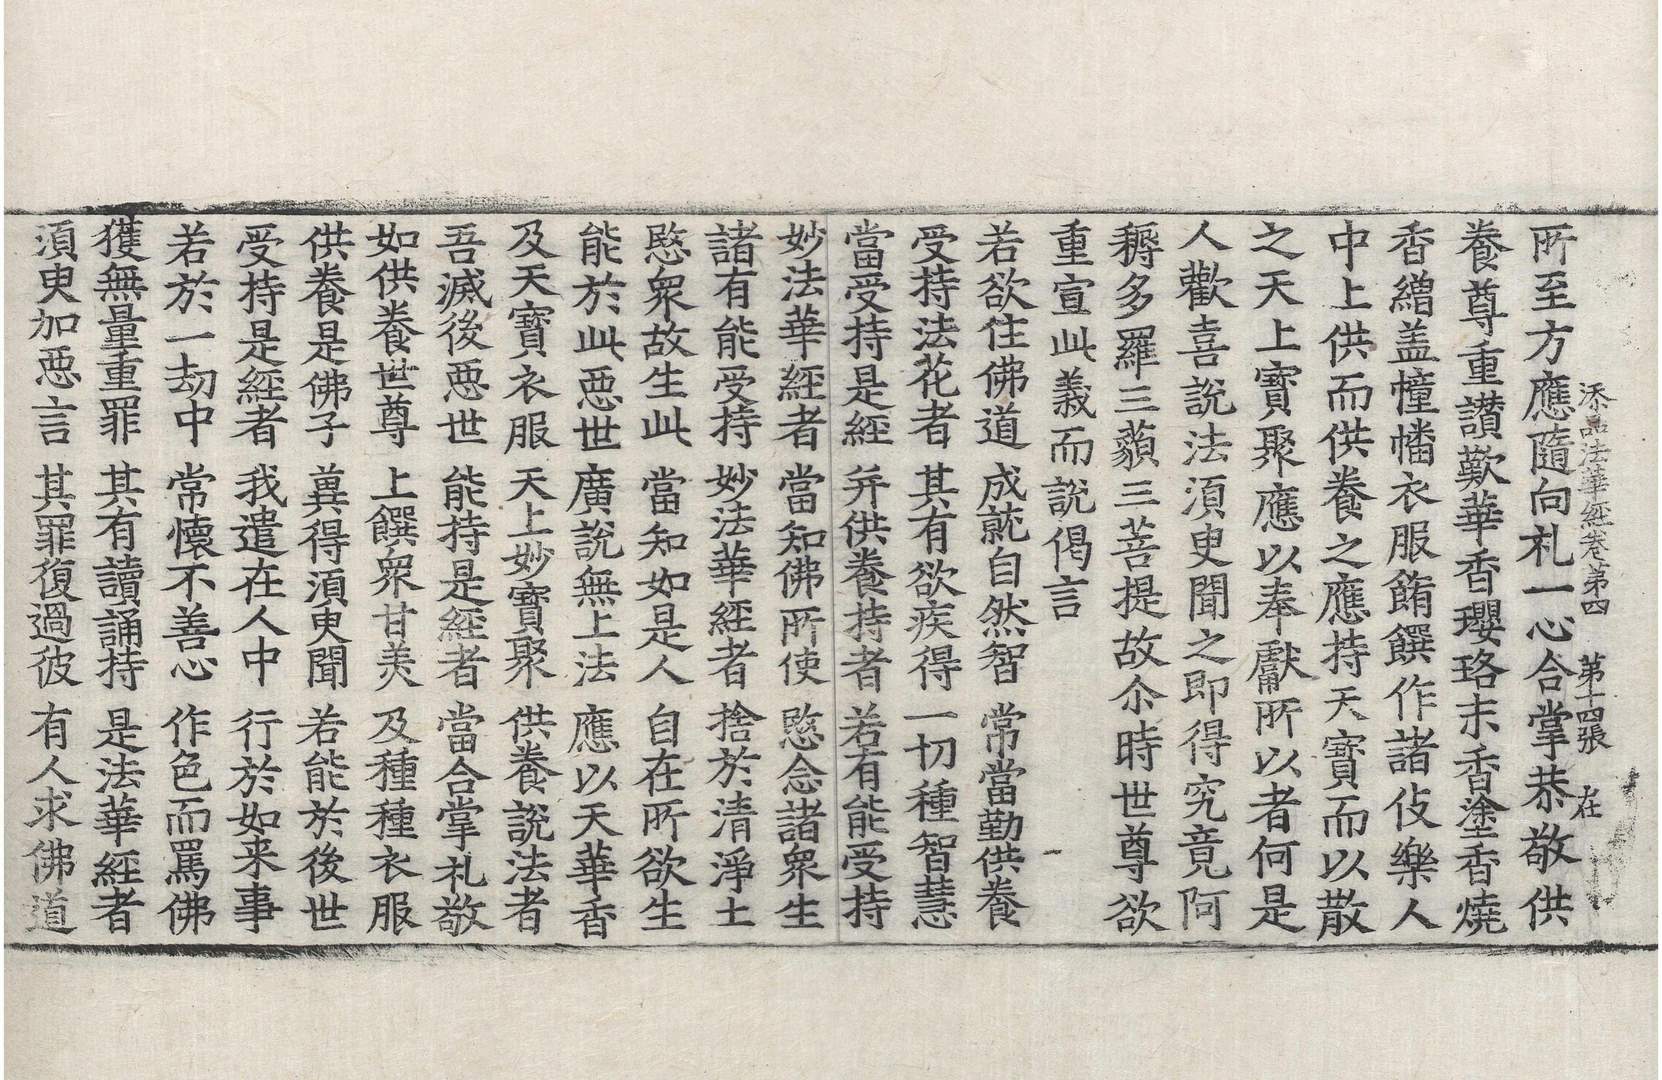 添品法華經卷第四　第十四張　在
所至方應隨向札一心合掌恭敬供
養尊重讚歎華香瓔珞末香塗香燒
香繒盖幢幡衣服餚饌作諸伎樂人
中上供而供養之應持天寶而以散
之天上寶聚應以奉獻所以者何是
人歡喜說法須臾聞之即得究竟阿
耨多羅三藐三菩提故尒時世尊欲
重宣此義而說偈言
若欲住佛道　成就自然智　常當勤供養
受持法花者　其有欲疾得　一切種智慧
當受持是經　幷供養持者　若有能受持
妙法華經者　當知佛所使　愍念諸衆生
諸有能受持　妙法華經者　捨於清淨土
愍衆故生此　當知如是人　自在所欲生
能於此惡世　廣說無上法　應以天華香
及天寶衣服　天上妙寶聚　供養說法者
吾滅後惡世　能持是經者　當合掌札敬
如供養世尊　上饌衆甘美　及種種衣服
供養是佛子　兾得須臾聞　若能於後世
受持是經者　我遣在人中　行於如来事
若於一劫中　常懷不善心　作色而罵佛
獲無量重罪　其有讀誦持　是法華經者
須臾加惡言　其罪復過彼　有人求佛道